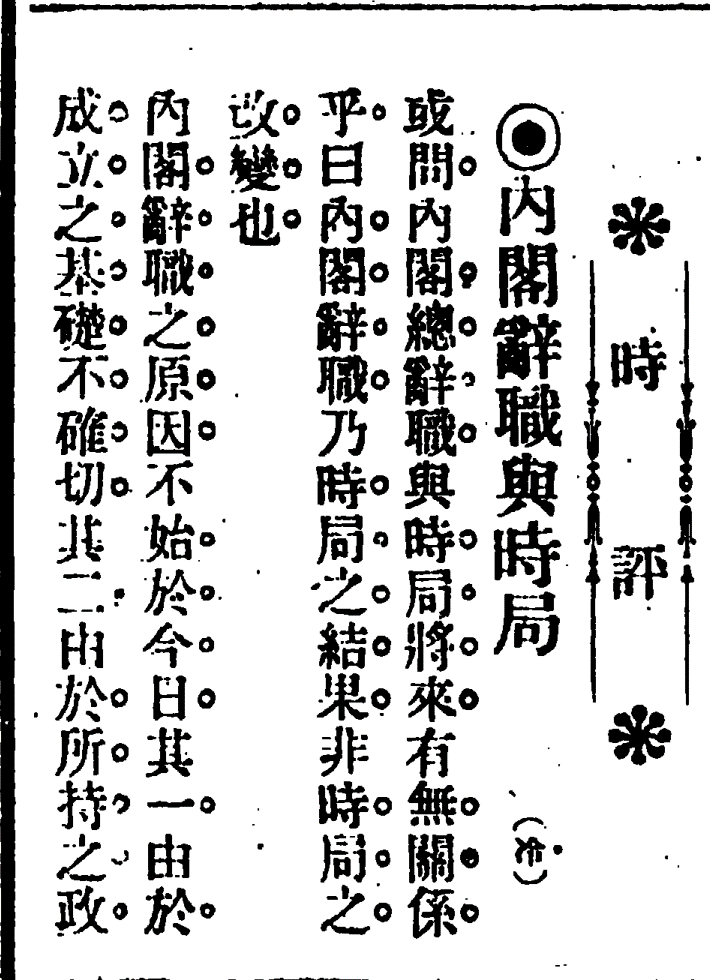 時評
◉內閣辭職與時局（冷）
或問內閣總辭職與時局將來有無關係
乎曰內閣辭職乃時局之結果非時局之
改變也
內閣辭職之原因不始於今日其一由於
成立之基礎不確切其二由於所持之政